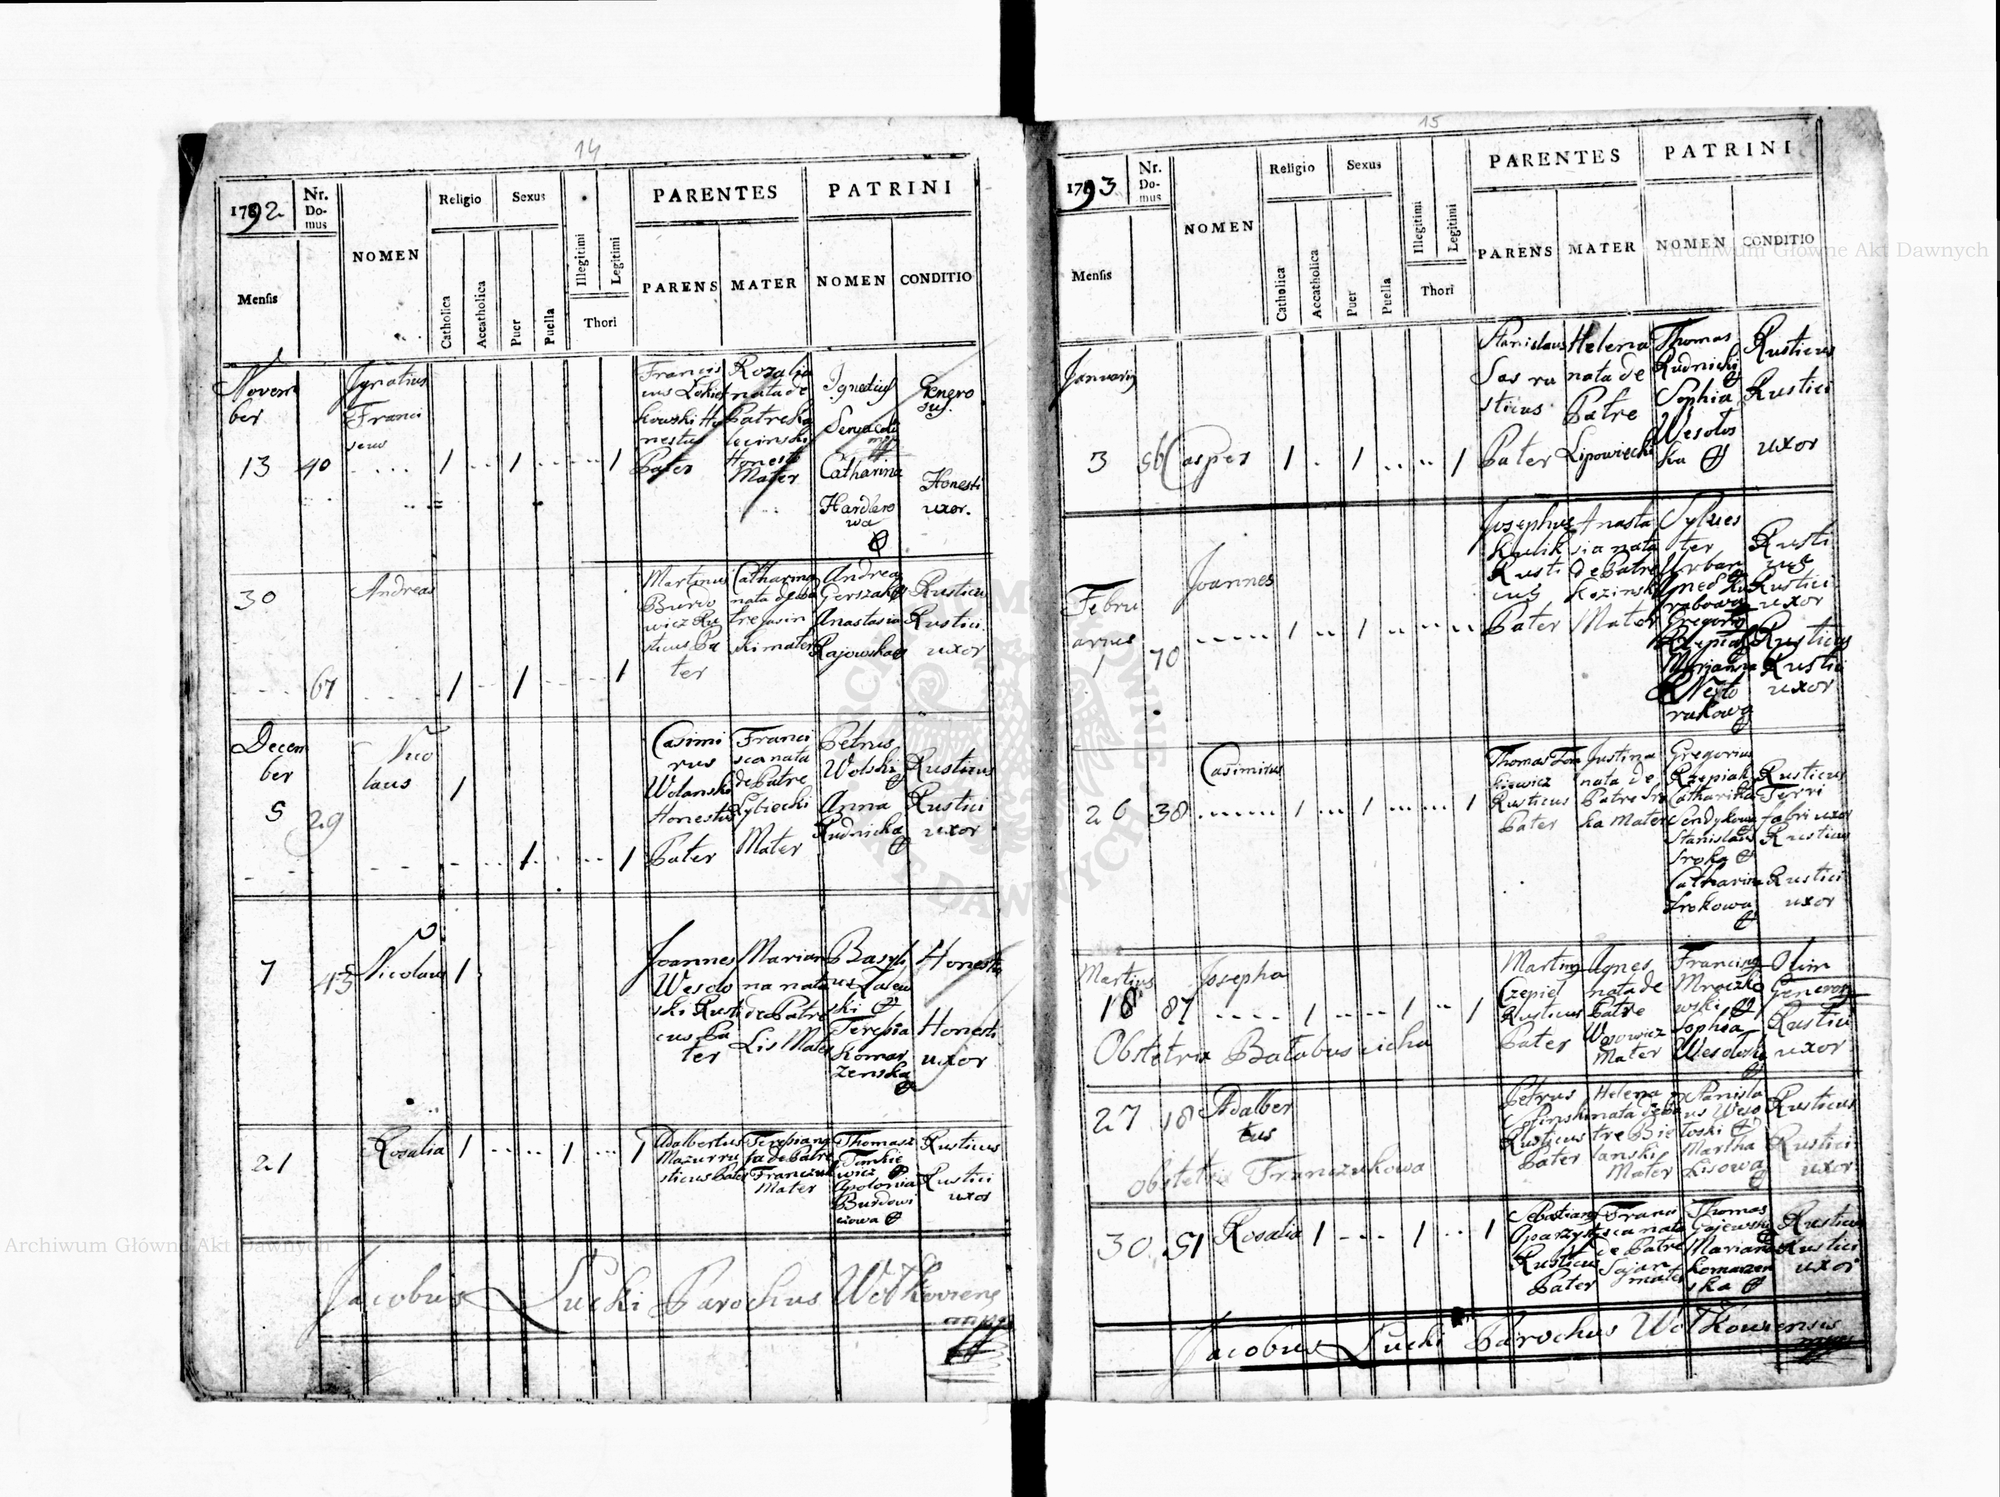 14
1792
Nr. Domus
NOMEN
Religio
Sexus
Illegitimi
Legitimi
PARENTES
PATRINI
Mensis
Catholica
Accatholica
Puer
Puella
Thori
PARENS
MATER
NOMEN
CONDITIO
Novem
ber
13 40
Ignatius
Franci
scus
1 1 1
Francis
cus
kowski Ho
nestus
Pater
Rozalia
nata de
Patre
Honesti
Mater
Ignatius
Catharina
Hardero
wa
Genero
sus.
Honesti
uxor.
30
67
Andreas
1 1 1
Martinus
Burdo
wicz Ru
sticus Pa
ter
Catharina
nata de Pa
tre Jasin
ski mater
Andreas
Gerszak
Anastasia
Rajowska
Rusticus
Rustici
uxor
Decem
ber
5 29
Nico
laus
1 1 1
Casimi
rus
Wolanski
Honestus
Pater
Franci
sca nata
de Patre
Mater
Petrus
Wolski
Anna
Rudnicka
Rusticus
Rustici
uxor
7 43
Nicolaus 1
Joannes
Wesolo
ski Rusti
cus Pa
ter
Marian
na nata
de Patre
Lis Mater
Basyli
us
ski
Teresia
Komar
zenska
Honestus
Honesti
uxor
21
Rosalia 1 1 1
Adalbertus
Mazur ru
sticus Pater
Teresia na
ta de Patre
Franczuk
Mater
Thomasz
Tomkie
wicz
Apolonia
Burdowi
czowa
Rusticus
Rustici
uxor
Jacobus Łucki Parochus Wołkoviens
mpp
15
1793
Nr. Domus
NOMEN
Religio
Sexus
Illegitimi
Legitimi
PARENTES
PATRINI
Mensis
Catholica
Accatholica
Puer
Puella
Thori
PARENS
MATER
NOMEN
CONDITIO
Januarij
3 56 Casper 1 1 1
Stanislaus
Sas ru
sticus
Pater
Helena
nata de
Patre
Lipowiecki
Thomas
Rudnicki
Sophia
Wesolos
ka
Rusticus
Rustici
uxor
Febru
arius
1 70
Joannes
1 1
Josephus
Kulik
Rusti
cus
Pater
Anasta
sia nata
de Patre
Kozinski
Mater
Sylves
ter
Urban
Gregory
Rzepiak
Marjanna
Nesto
rukowa
Rusti
cus
Rustici
uxor
Rusticus
Rustici
uxor
26 38
Casimirus
1 1 1
Thomas Tom
kiewicz
Rusticus
Pater
Justina
nata de
Patre Sro
ka Mater
Gregorius
Rzepiak
Catharina
Stanislaus
Sroka
Catharina
Srokowa
Rusticus
Ferri
fabri uxor
Rusticus
Rustici
uxor
Martius
18 87
Josepha
1 1 1
Obstetrix Batabuszicha
Martinus
Czepiel
Rusticus
Pater
Agnes
nata de
Patre
Wosowicz
Mater
Franciscus
Mroczko
wski
Sophia
Wesolowska
Olim
Generosus
Rustici
uxor
27 18 Adalber
tus
Obstetrix Franczukowa
Petrus
Rusticus
Pater
Helena
nata de Pa
tre Bie
lanski
Mater
Stanisla
us Weso
loski
Martha
Lisowa
Rusticus
Rustici
uxor
30 51 Rosalia 1 1 1
Sebastianus
Oparzyk
Rusticus
Pater
Franci
sca nata
de Patre
Sajan
mater
Thomas
Gajewski
Marianna
Komarzen
ska
Rusticus
Rustici
uxor
Jacobus Łucki Parochus Wołkowiensis
mpp
Archiwum Główne Akt Dawnych
Archiwum Główne Akt Dawnych